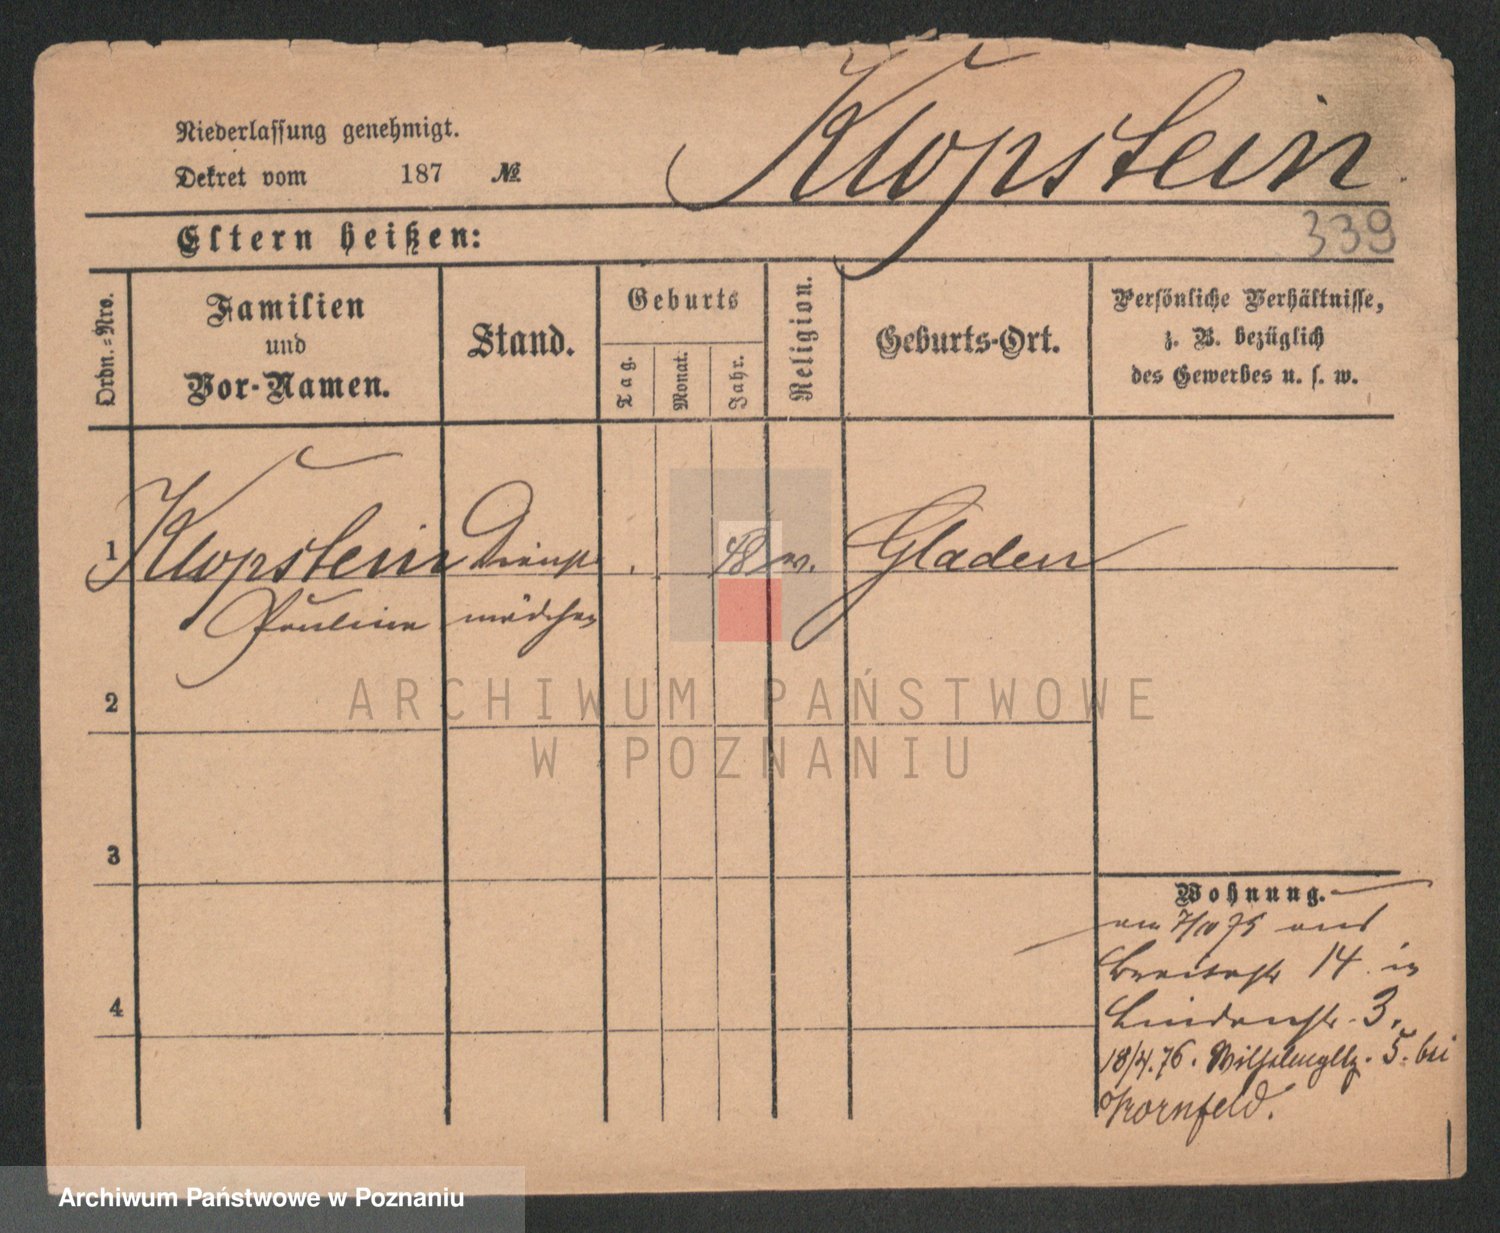 Klopstein
Niederlassung genehmigt.
Dekret vom 187 №
Eltern heißen:
339
Ordn.-Nro.
Familien
und
Vor-Namen.
Stand.
Geburts
Tag.
Monat.
Jahr.
Religion.
Geburts-Ort.
Persönliche Verhältnisse,
z. B. bezüglich
des Gewerbes u. s. w.
1 Klopstein Dienst 48 Gladen
Pauline mädchen
2
ARCHIWUM PAŃSTWOWE
W POZNANIU
3
Wohnung.
am 7/10 75 aus
Breitestr 14 in
Lindenstr. 3.
4
18/4.76. Wilhelmspltz. 5. bei
Kornfeld.
Archiwum Państwowe w Poznaniu